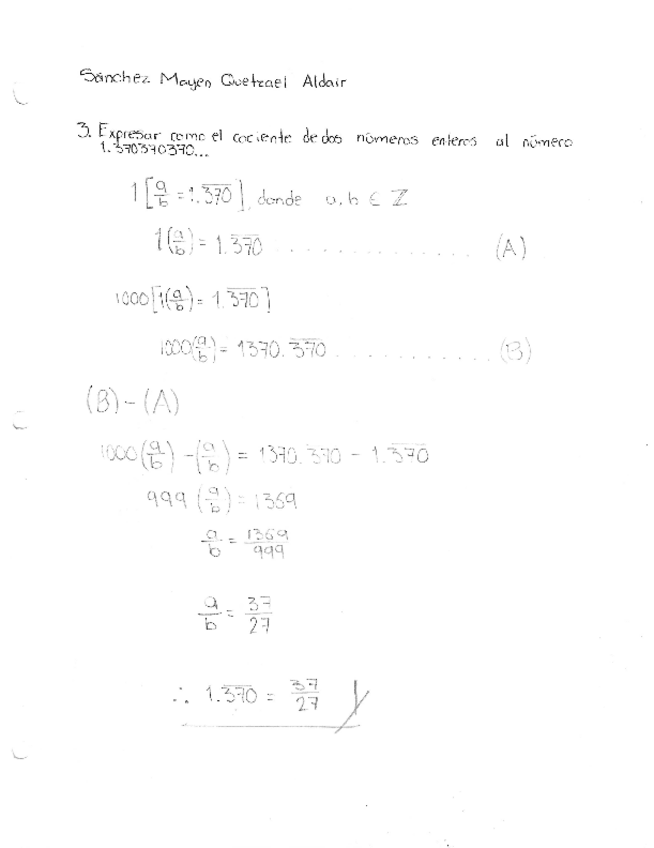 Sánchez Mayen Quetzael Aldair
3. Expresar como el cociente de dos números enteros al número
1.370370370...
1[a/b = 1.3̅7̅0̅], donde a, b ∈ ℤ
1(a/b) = 1.3̅7̅0̅ .............. (A)
1000[1(a/b) = 1.3̅7̅0̅]
1000(a/b) = 1370.3̅7̅0̅ ........... (B)
(B) - (A)
1000(a/b) - (a/b) = 1370.3̅7̅0̅ - 1.3̅7̅0̅
999(a/b) = 1369
a/b = 1369/999
a/b = 37/27
∴ 1.3̅7̅0̅ = 37/27